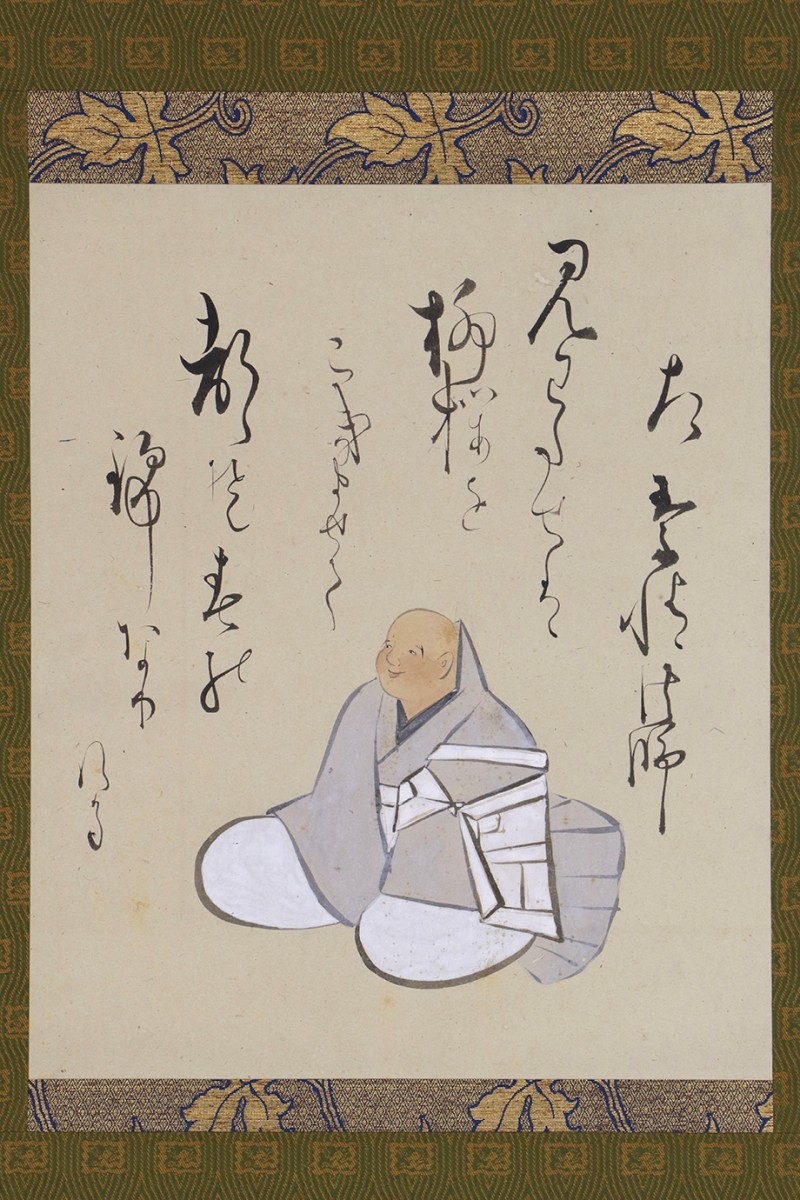 左 素性法師
見わたせは
柳桜を
こきませて
都そ春の
錦なり
ける